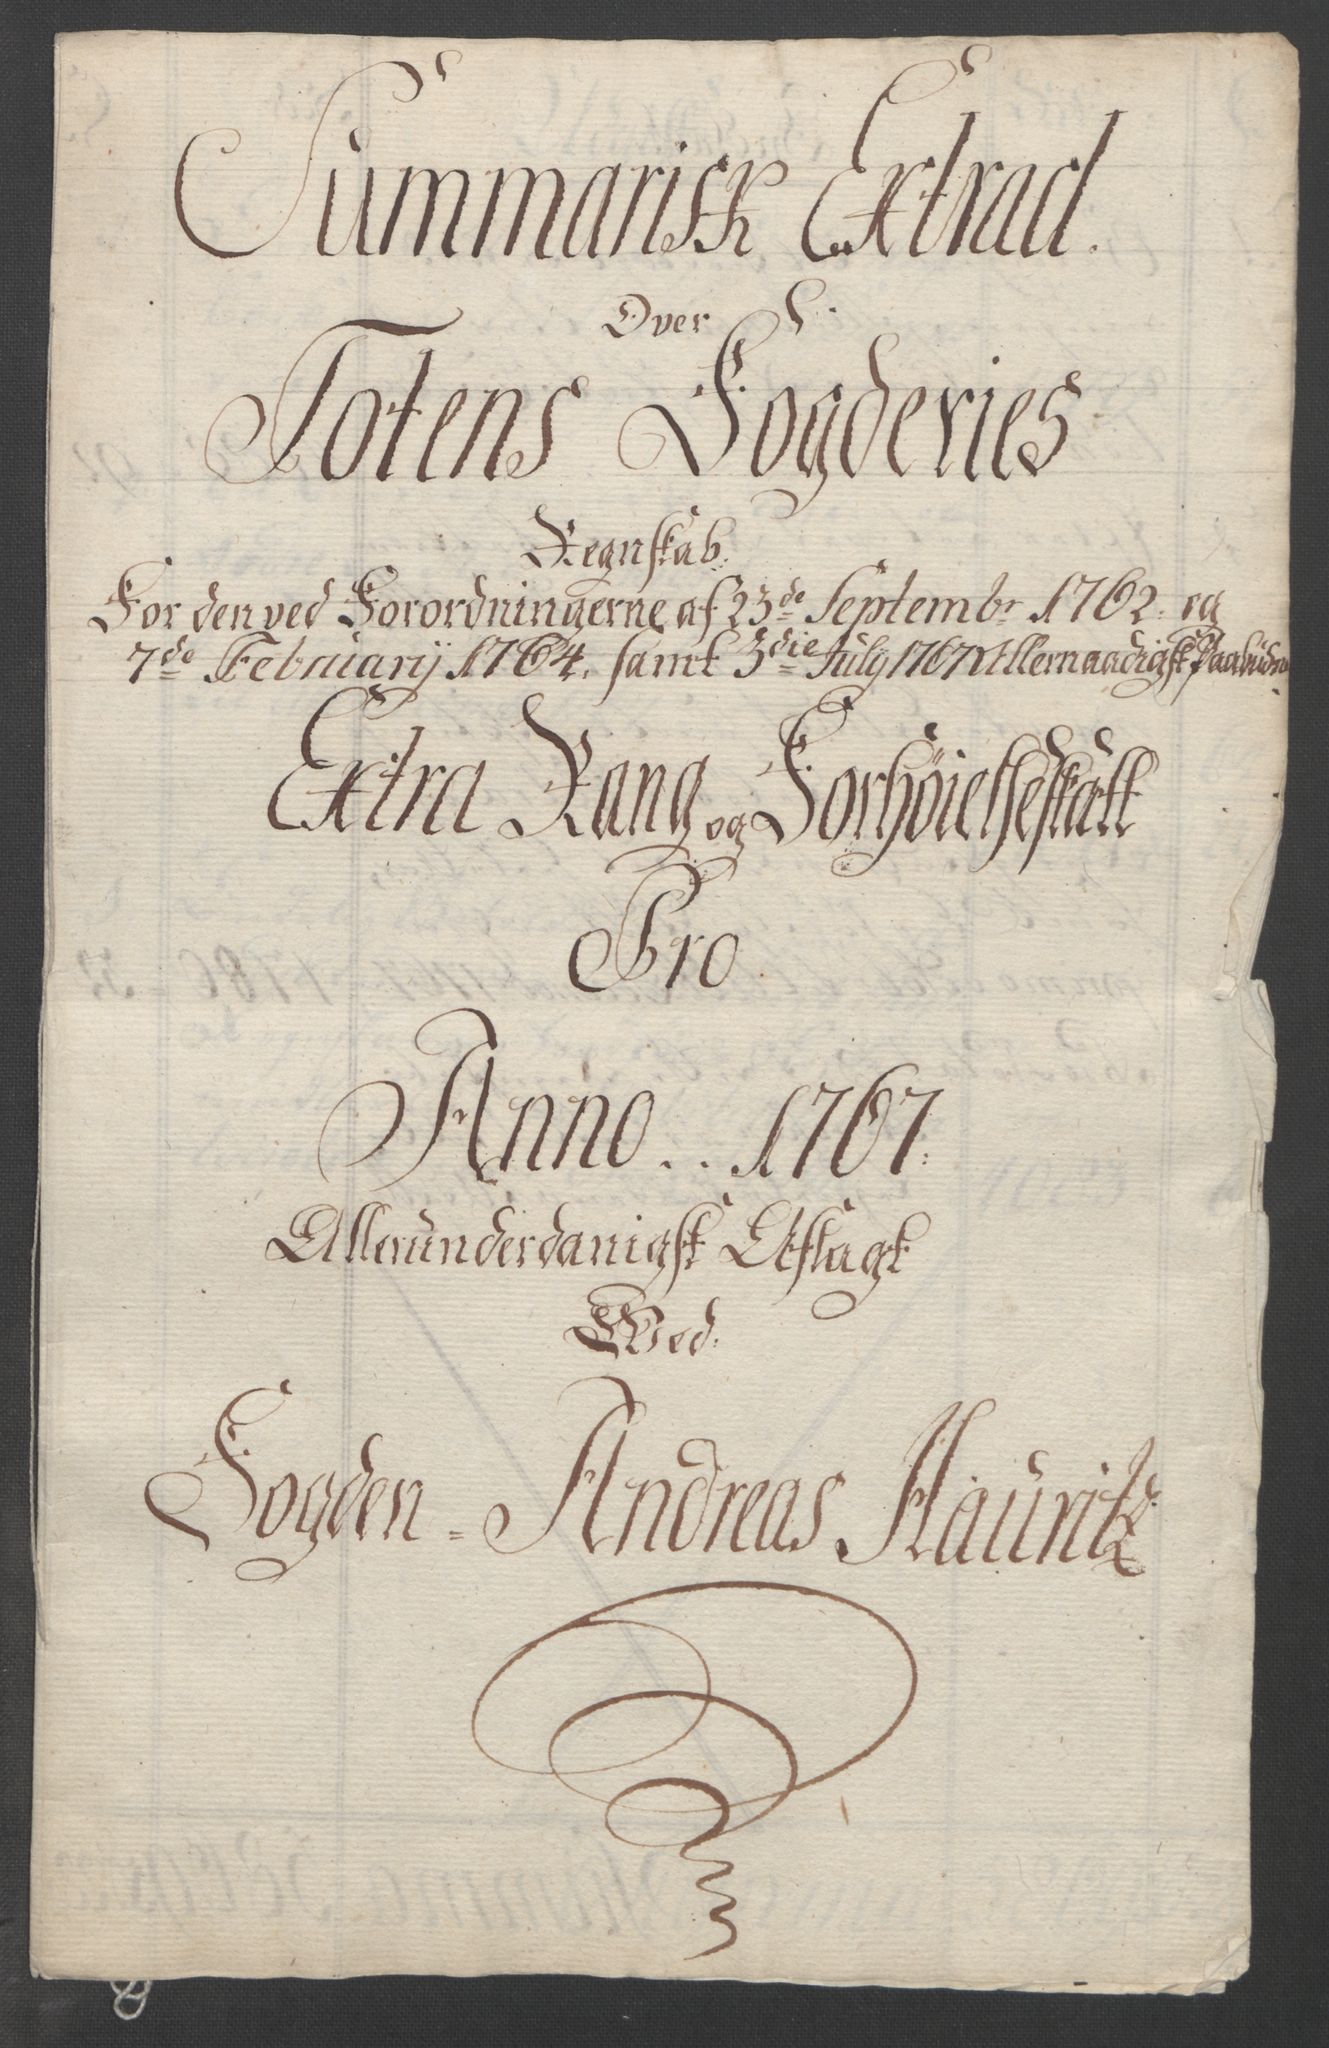 Summarisk Extract.
Over
Totens Fogderies
Regnskab.
For den ved Forordningerne af 23de Septembr 1762. og
7de Februarij 1764. samt 3die July 1767 Allernaadigst Paabudne
Extra Rang og Forhøielsesskatt
Pro
Anno .. 1767.
Allerunderdanigst Aflagt
Wed.
Fogden = Andreas Hauritz